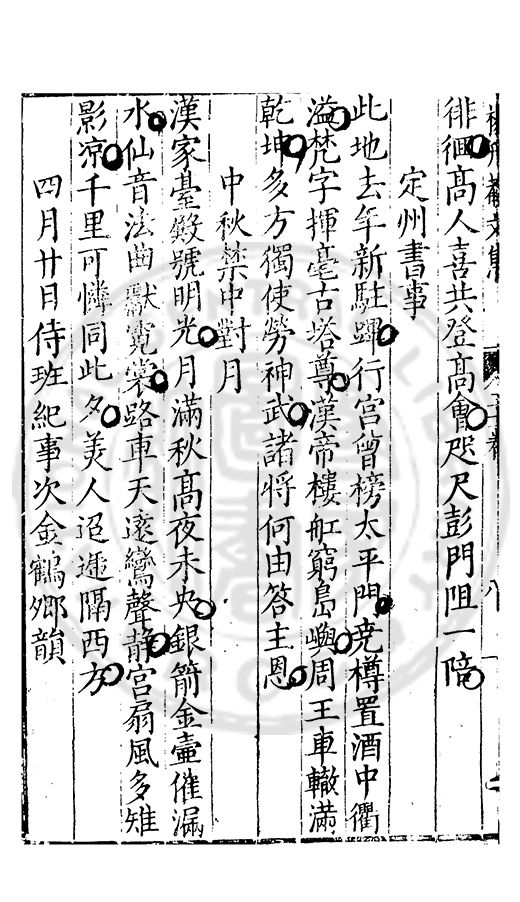 徘徊高人喜共登高會咫尺彭門阻一陪
定州書事
此地去年新駐蹕行宮曾榜太平門堯樽置酒中衢
溢梵字揮毫古塔尊漢帝樓舡窮島嶼周王車轍滿
乾坤多方獨使勞神武諸將何由答主恩
中秋禁中對月
漢家臺殿號明光月滿秋高夜未央銀箭金壺催漏
水仙音法曲獻霓裳路車天遠鸞聲静宮扇風多雉
影凉千里可憐同此夕美人迢遞隔西方
四月廿日侍班紀事次金鶴鄉韻